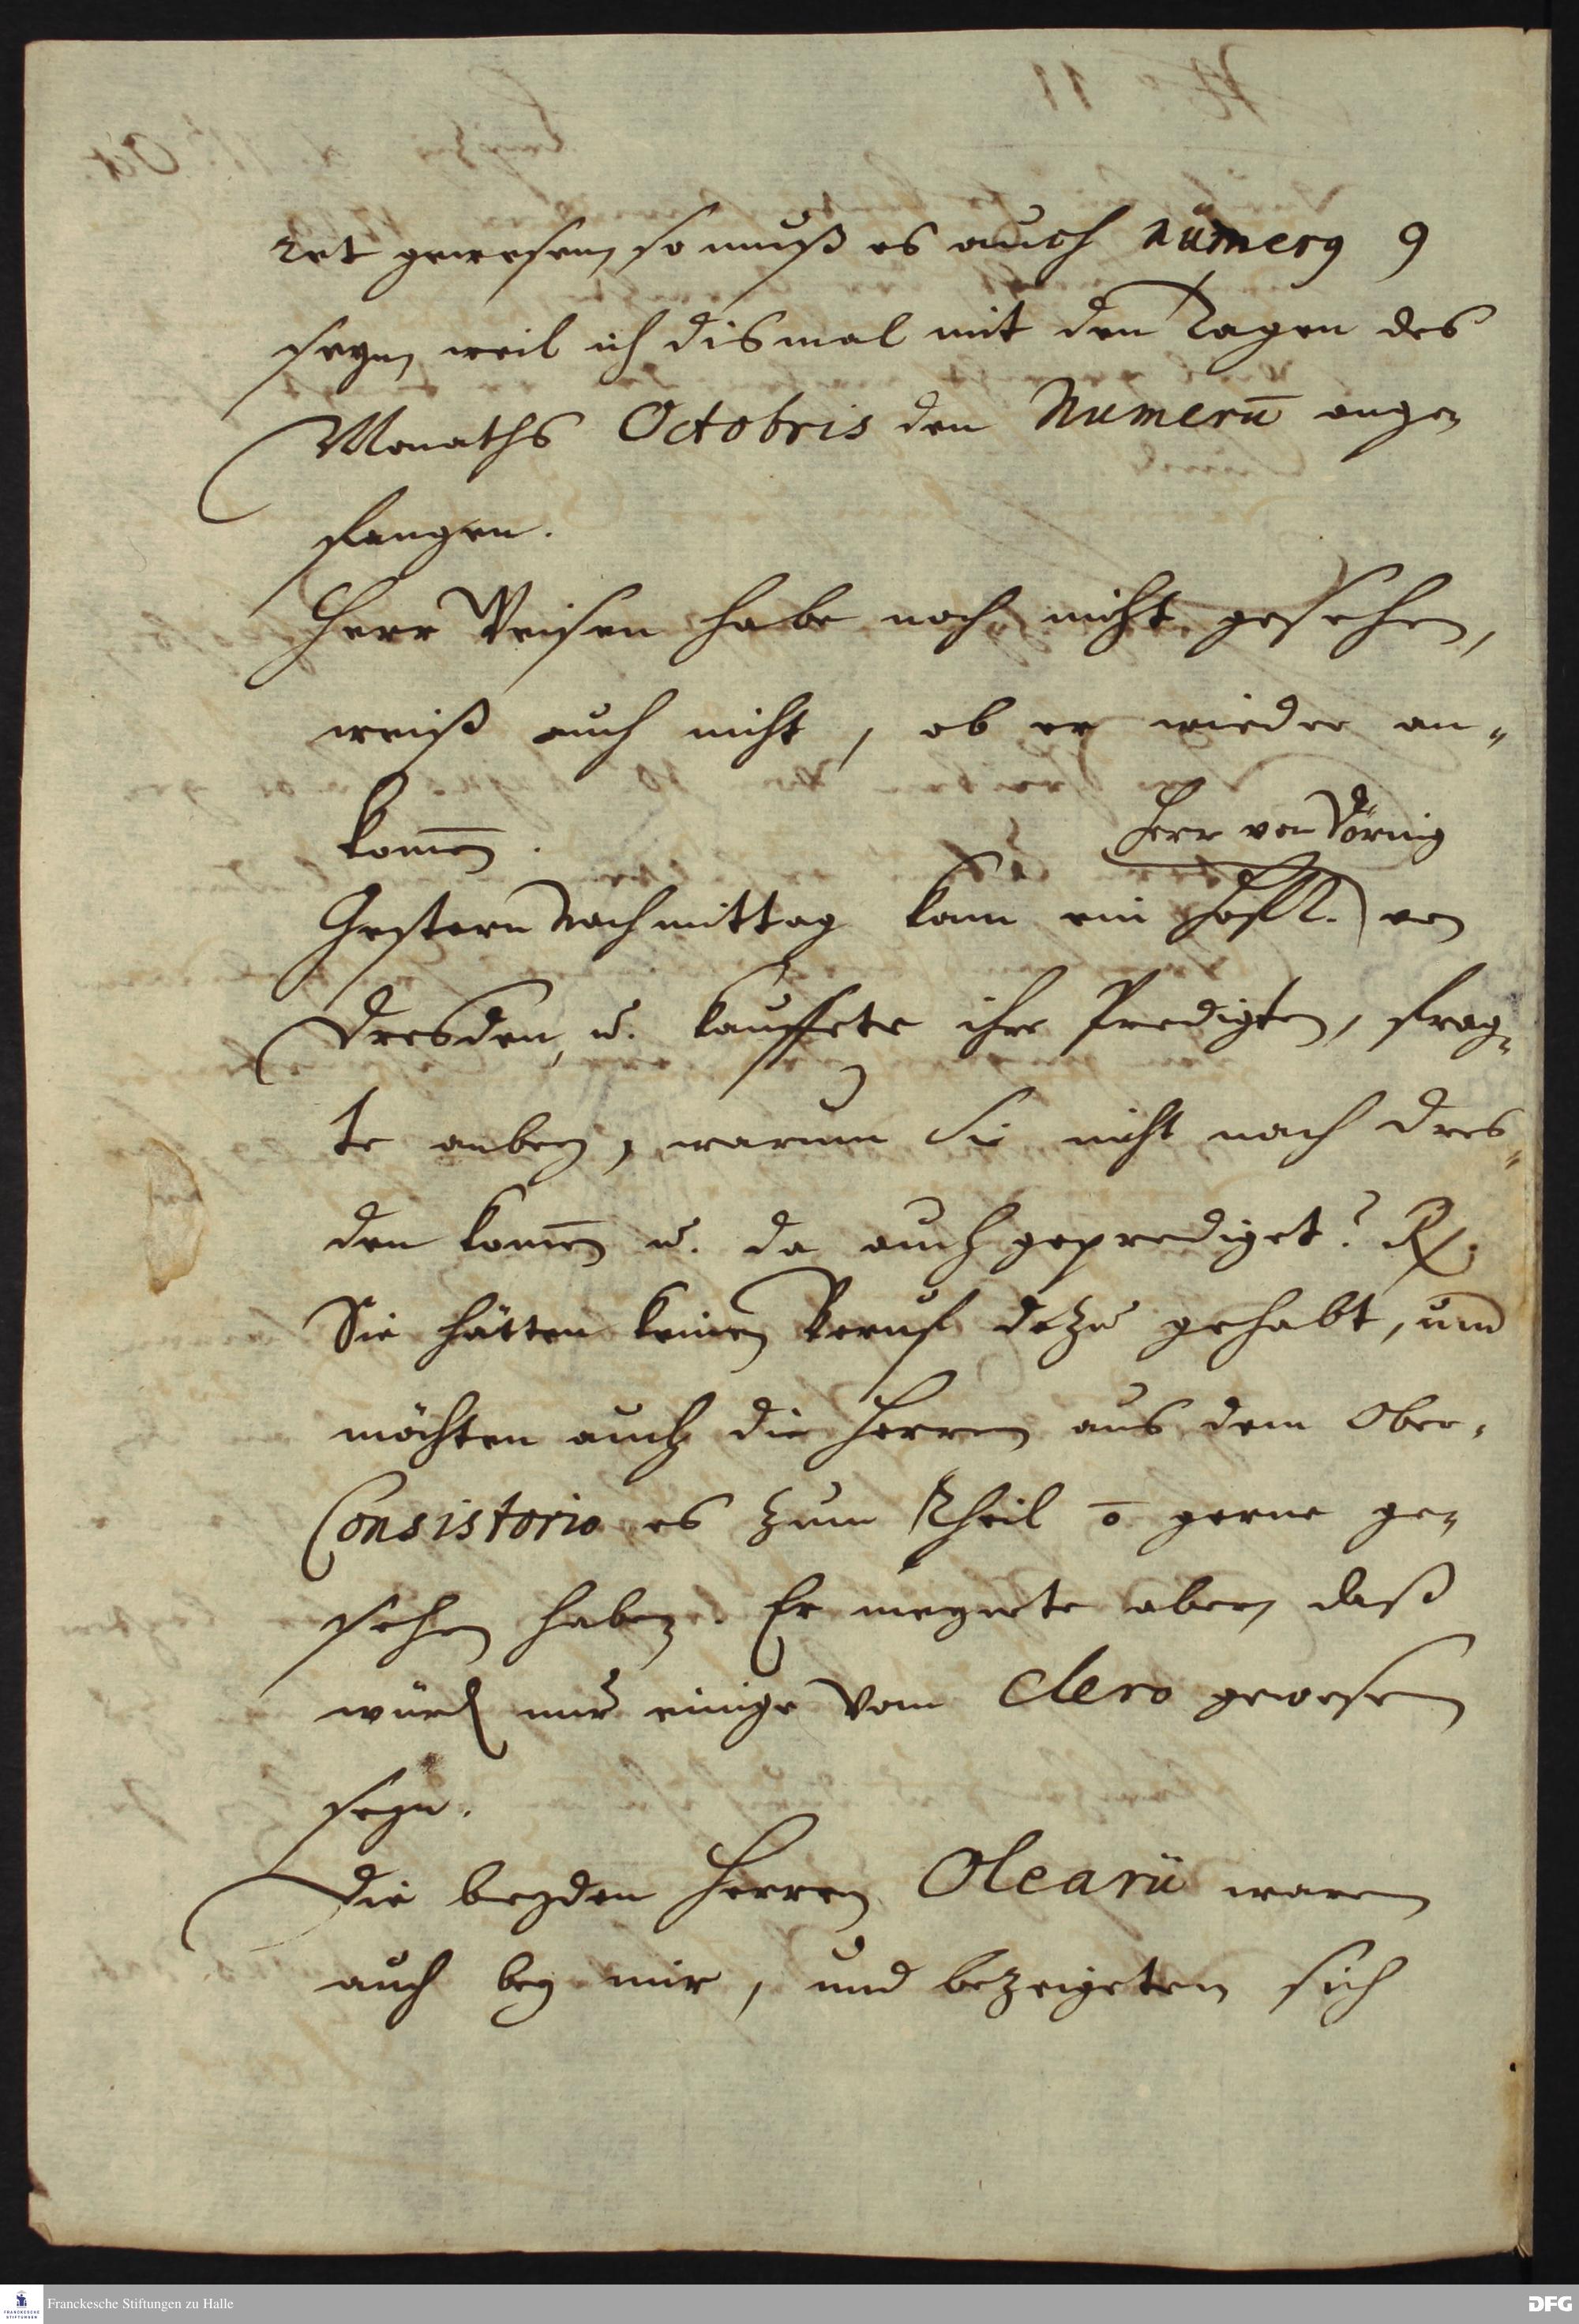 ret gewesen, so muß es auch numerꝰ 9
seyn, weil ich dismal mit den Tagen des
Monaths Octobris den Numerū ange-
fangen.
Herr Weisen habe noch nicht gesehen,
weiß auch nicht, ob er wieder an-
kom̄en.
Herr von Döring
Gestern Nachmittag kam ein von
Dresden, u. kauffete ihre Predigten, frag-
te anbey, warum Sie nicht nach Dres-
den kom̄en u. da auch geprediget? Rx.
Sie hätten keinen Beruf dazu gehabt, und
möchten auch die Herren aus dem Ober-
Consistorio es zum Theil ō gerne ge-
sehen haben. Er meynte aber, daß
würd nur einige vom Clero gewesen
seyn.
Die beyden Herren Olearii waren
auch bey mir, und bezeigeten sich
Franckesche Stiftungen zu Halle
DFG